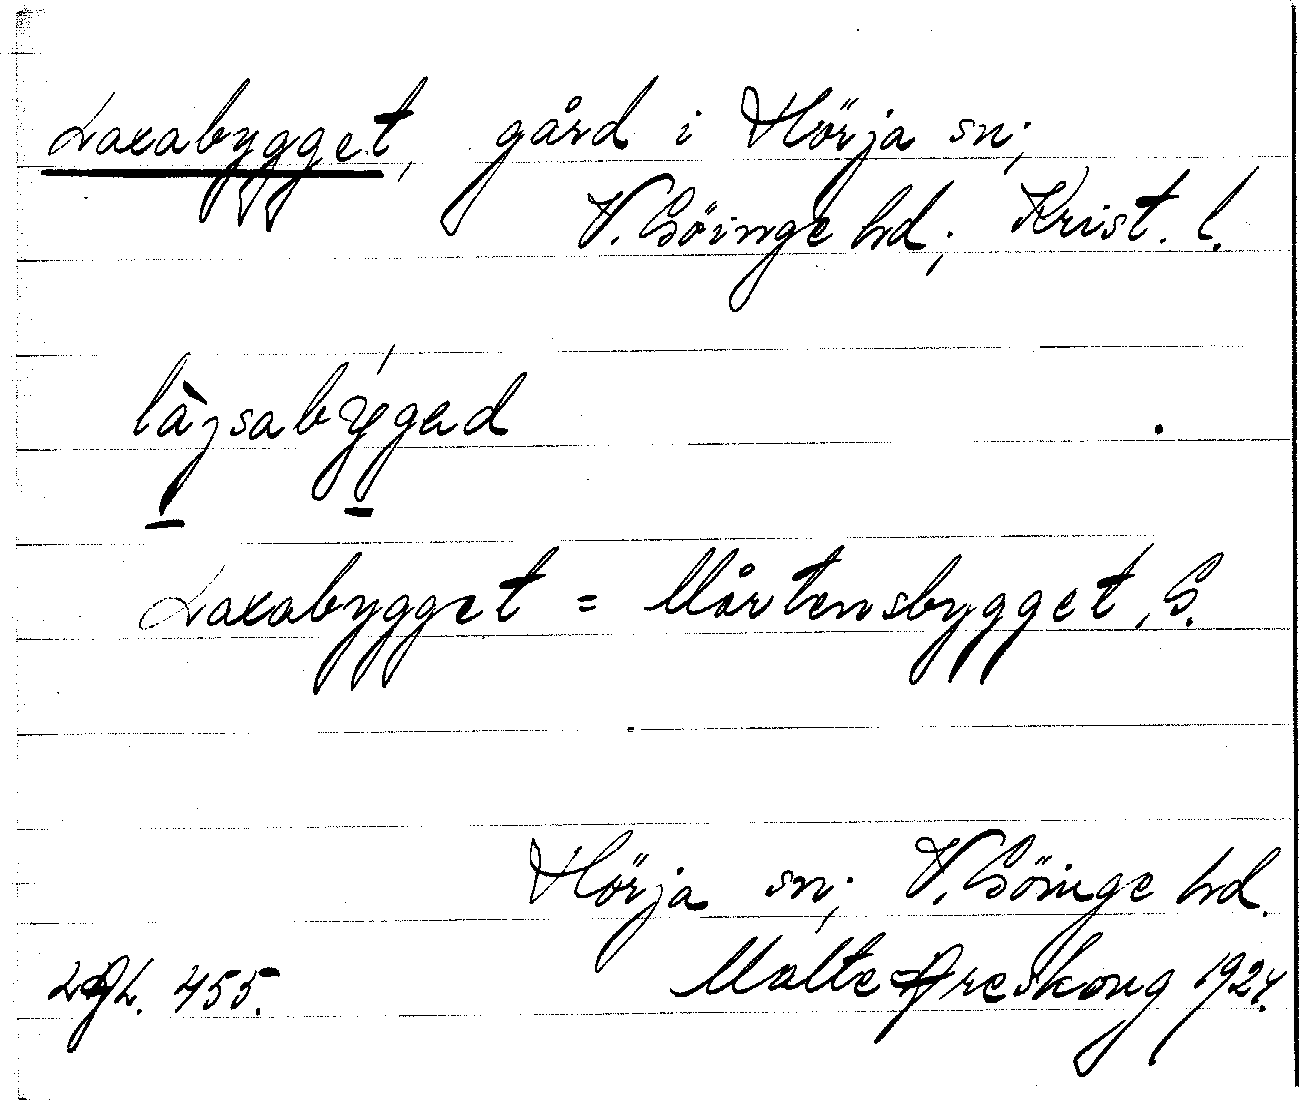 Laxabygget, gård i Hörja sn;
V. Göinge hd; Krist. l.
làgsabýged
Laxabygget = Mårtensbygget, G.
Hörja sn; V. Göinge hd.
455. Malte Areskoug 1924.